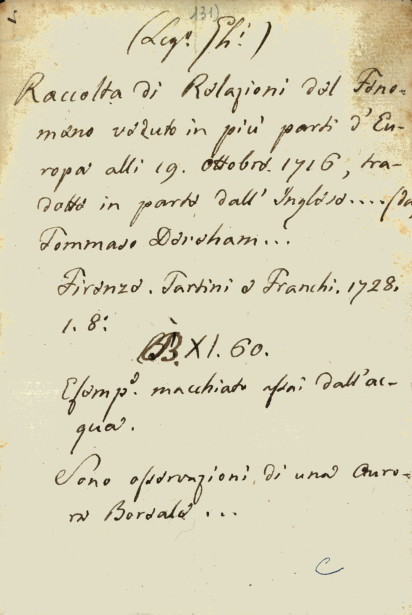 131)
(Leg.º Ghi.)
Raccolta di Relazioni del Feno-
meno veduto in più parti d'Eu-
ropa alli 19. ottobre. 1716, tra-
dotte in parte dall' Inglese.... (da
Tommaso Dereham...
Firenze. Tartini e Franchi. 1728.
1. 8.º
B. XI. 60.
Esemp.º macchiato assai dall'ac-
qua.
Sono osservazioni di una Auro-
ra Boreale ...
C